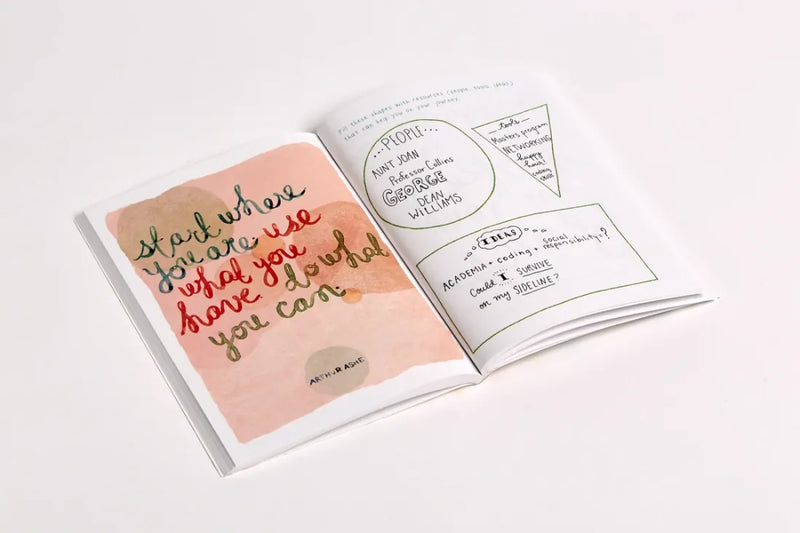 start where
you are. use
what you
have. do what
you can.
ARTHUR ASHE
Fill these shapes with resources (people, tools, ideas)
that can help you on your journey.
...PEOPLE...
AUNT JOAN
Professor Collins
GEORGE
DEAN
WILLIAMS
— tools —
Masters program
NETWORKING
happy
hour!
IDEAS
ACADEMIA + coding + social
responsibility = ?
Could I SURVIVE
on my SIDELINE?